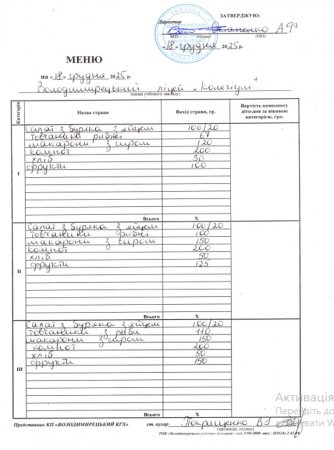 ЗАТВЕРДЖУЮ:
Директор
Остапенко А.Ф.
М.П. (підпис) (ПІБ)
"18" грудня 2025р.
МЕНЮ
на "18" грудня 2025р.
Володимирецький ліцей "Колегіум"
(назва учбового закладу)
Категорія
Назва страви
Вихід страви, гр.
Вартість комплексу дієто-дня за віковою категорією, грн.
I
Салат з буряка з яйцем 100/20
товчаники рибні 67
макарони з сиром 120
компот 200
хліб 30
фрукти 100
Всього X
II
Салат з буряка з яйцем 100/20
товчаники рибні 100
макарони з сиром 150
компот 200
хліб 50
фрукти 125
Всього X
III
Салат з буряка з яйцем 100/20
товчаники з риби 110
макарони з сиром 150
компот 200
хліб 50
фрукти 150
Всього X
Представник КП «ВОЛОДИМИРЕЦЬКИЙ КГХ» ст. кухар
(прізвище, підпис)
Активація
Перейдіть до